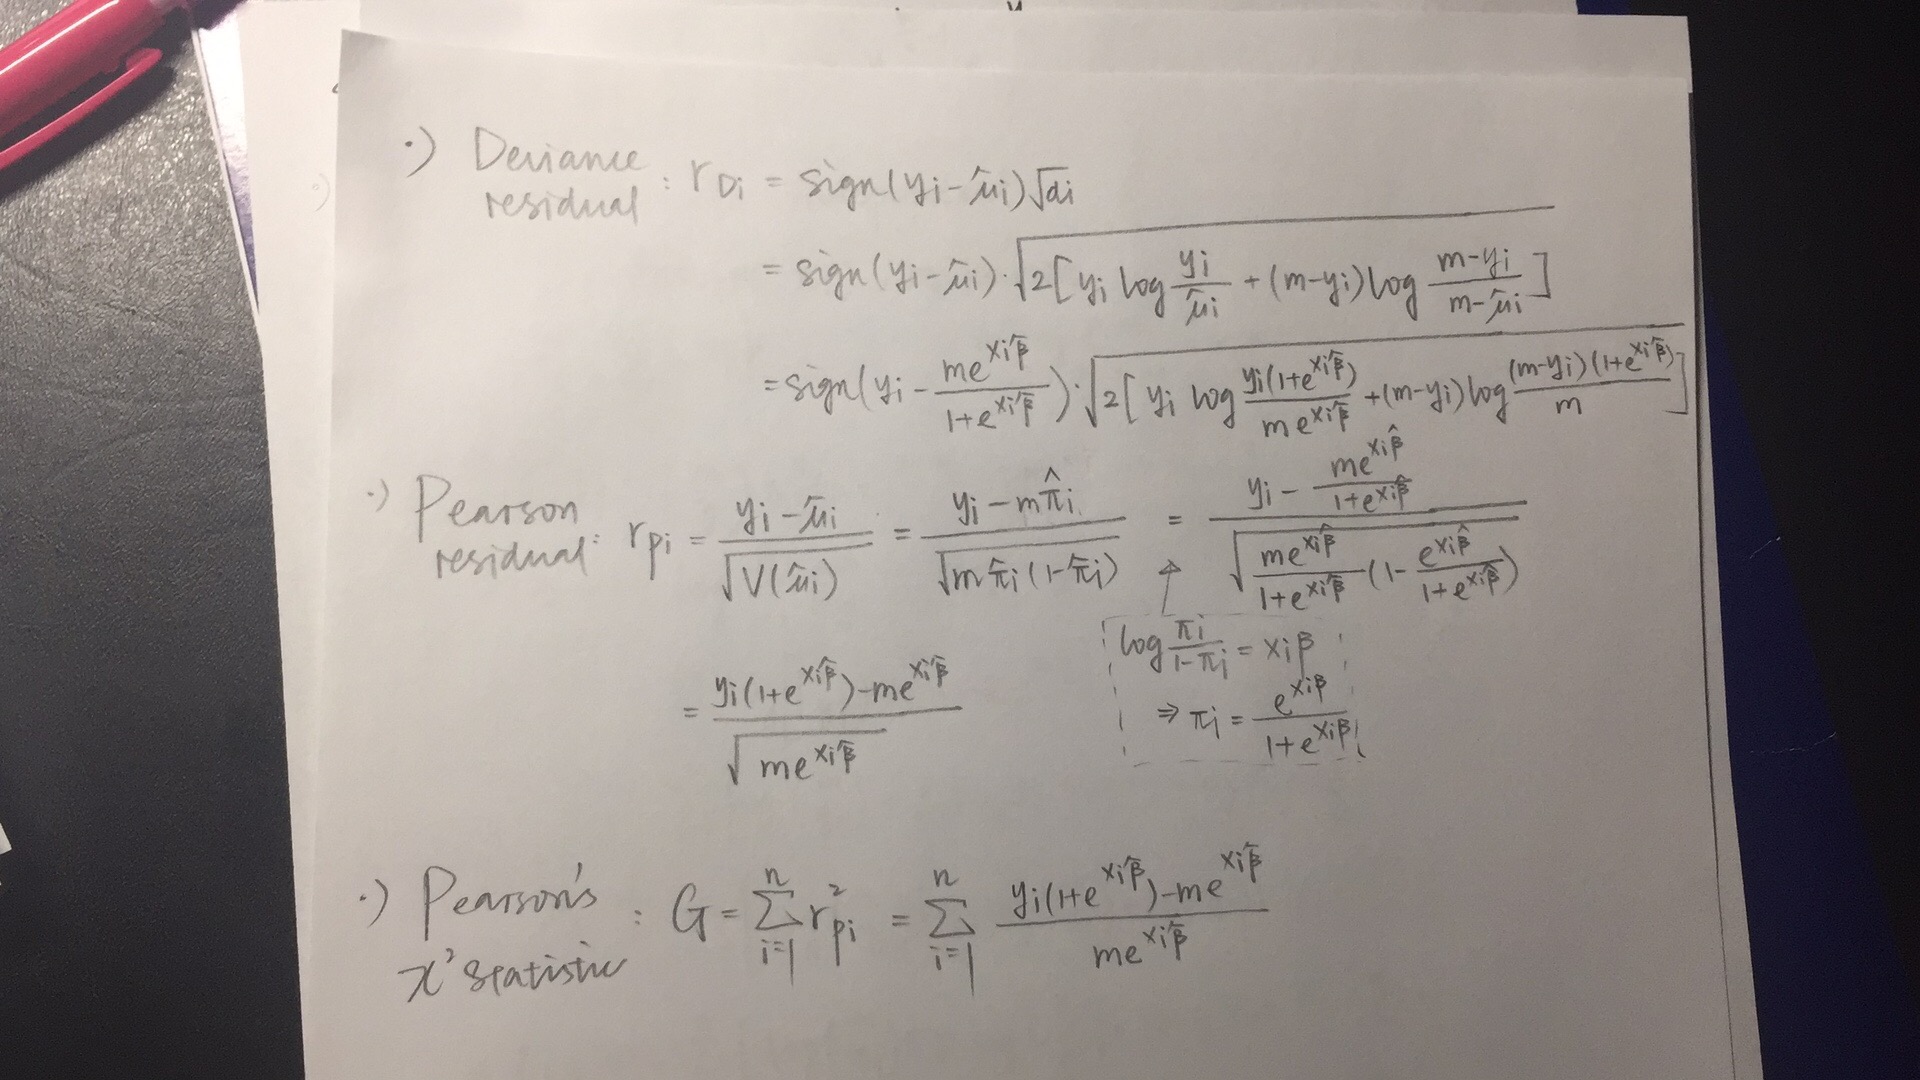 ·) Deviance residual : r_Di = sign(yi - μ̂i)√di
= sign(yi - μ̂i)·√(2[yi log (yi / μ̂i) + (m-yi) log ((m-yi) / (m-μ̂i))])
= sign(yi - (me^(xiβ̂) / (1+e^(xiβ̂))))·√(2[yi log (yi(1+e^(xiβ̂)) / me^(xiβ̂)) + (m-yi) log ((m-yi)(1+e^(xiβ̂)) / m)])
·) Pearson residual : r_pi = (yi - μ̂i) / √V(μ̂i) = (yi - mπ̂i) / √(mπ̂i(1-π̂i)) = (yi - (me^(xiβ̂) / (1+e^(xiβ̂)))) / √((me^(xiβ̂) / (1+e^(xiβ̂)))(1 - (e^(xiβ̂) / (1+e^(xiβ̂)))))
log (πi / (1-πi)) = xiβ
⇒ πi = e^(xiβ) / (1+e^(xiβ))
= (yi(1+e^(xiβ̂)) - me^(xiβ̂)) / √(me^(xiβ̂))
·) Pearson's χ² statistic : G = Σ_(i=1)^n r²_pi = Σ_(i=1)^n (yi(1+e^(xiβ̂)) - me^(xiβ̂)) / me^(xiβ̂)